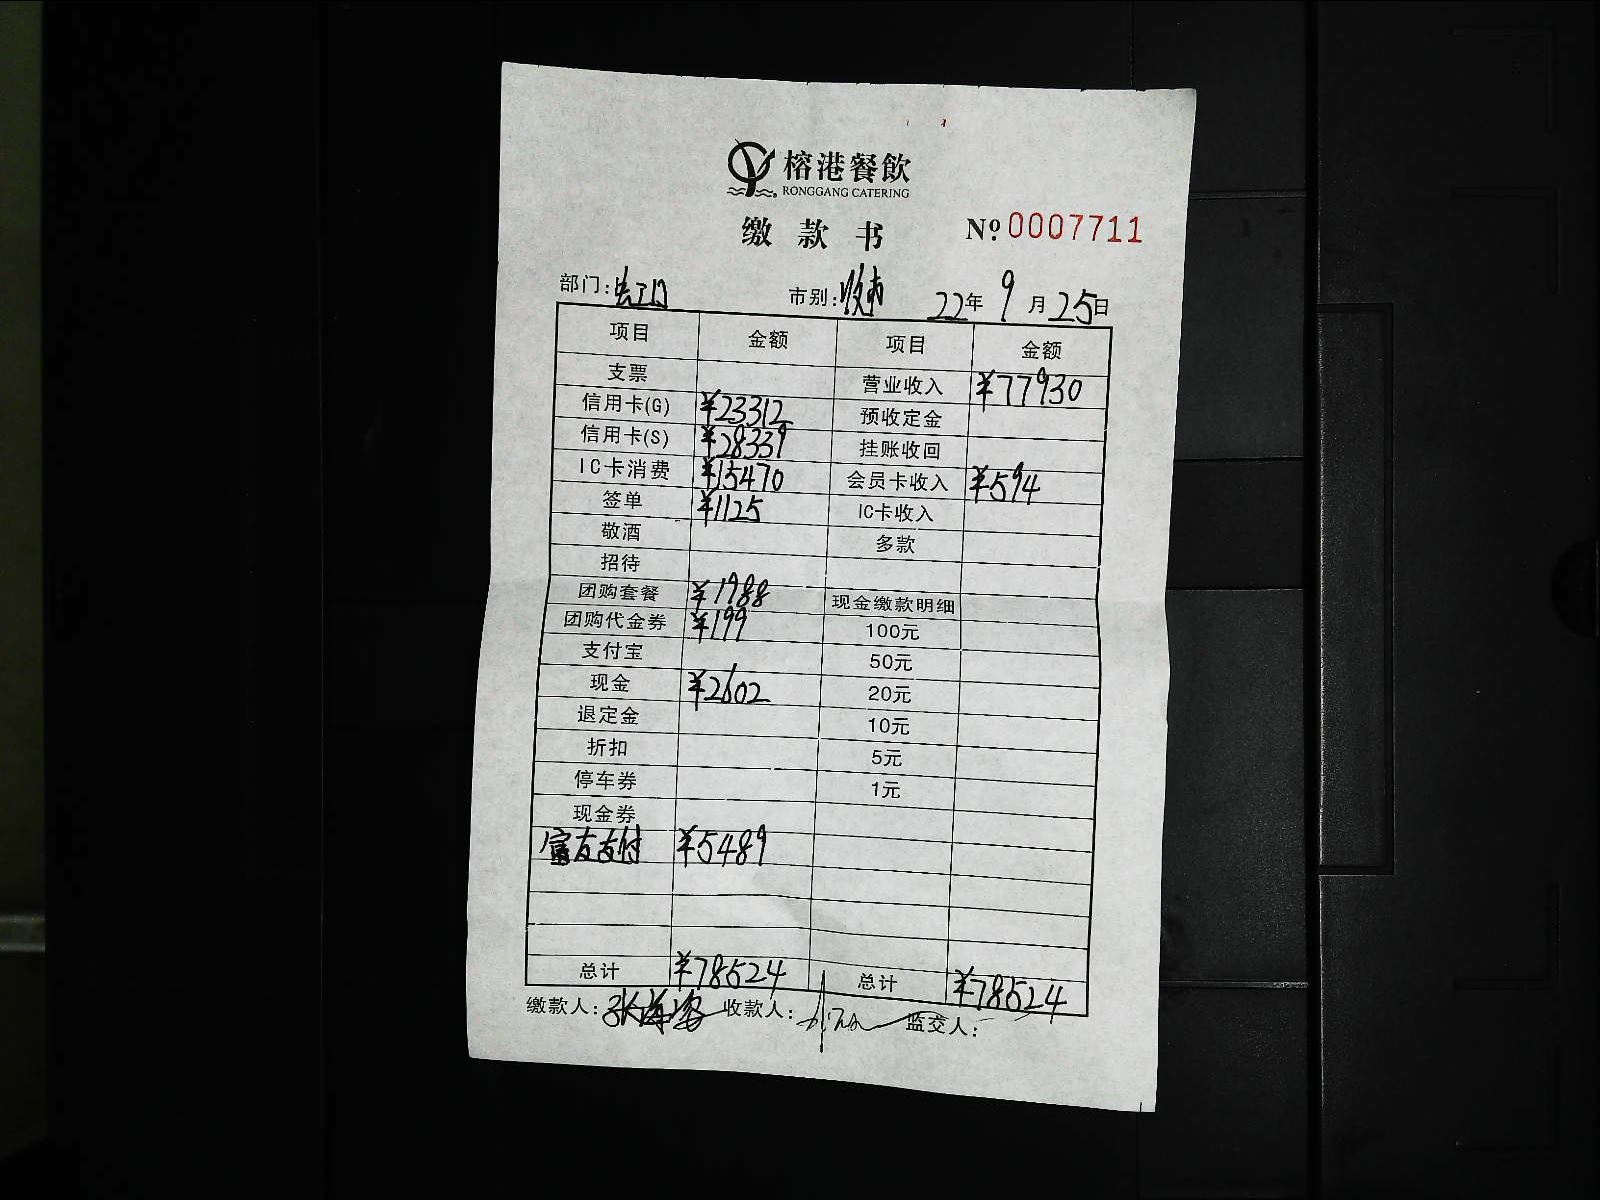 榕港餐飲
RONGGANG CATERING
缴款书 Nº 0007711
部门: 市别: 22年9月25日
项目 金额 项目 金额
支票 营业收入 ¥77930
信用卡(G) ¥23312 预收定金
信用卡(S) ¥28339 挂账收回
IC卡消费 ¥15470 会员卡收入 ¥594
签单 ¥1125 IC卡收入
敬酒 多款
招待
团购套餐 ¥1988 现金缴款明细
团购代金券 ¥199 100元
支付宝 50元
现金 ¥2602 20元
退定金 10元
折扣 5元
停车券 1元
现金券
富友支付 ¥5489
总计 ¥78524 总计 ¥78524
缴款人: 张海 收款人: 监交人: